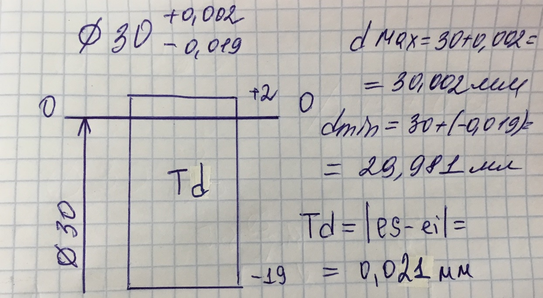 Ø30 +0,002
-0,019
d max = 30+0,002 =
= 30,002 мм
dmin = 30+(-0,019)=
= 29,981 мм
Td = |es-ei| =
= 0,021 мм
+2
0 0
Td
Ø30
-19